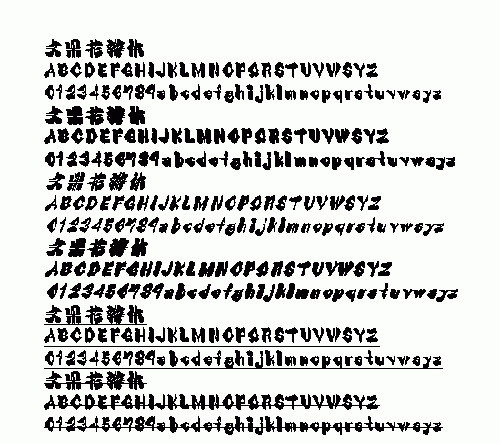 文鼎花瓣体
ABCDEFGHIJKLMNOPQRSTUVWSYZ
0123456789abcdefghijklmnopqrstuvwsyz
文鼎花瓣体
ABCDEFGHIJKLMNOPQRSTUVWSYZ
0123456789abcdefghijklmnopqrstuvwsyz
文鼎花瓣体
ABCDEFGHIJKLMNOPQRSTUVWSYZ
0123456789abcdefghijklmnopqrstuvwsyz
文鼎花瓣体
ABCDEFGHIJKLMNOPQRSTUVWSYZ
0123456789abcdefghijklmnopqrstuvwsyz
文鼎花瓣体
ABCDEFGHIJKLMNOPQRSTUVWSYZ
0123456789abcdefghijklmnopqrstuvwsyz
文鼎花瓣体
ABCDEFGHIJKLMNOPQRSTUVWSYZ
0123456789abcdefghijklmnopqrstuvwsyz